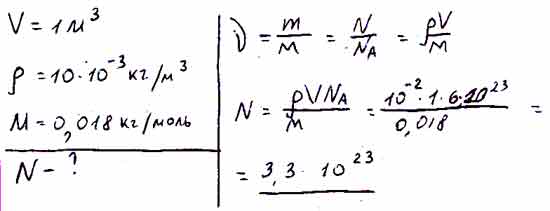 V = 1 м³
ρ = 10·10⁻³ кг/м³
M = 0,018 кг/моль
N – ?
ν = m/M = N/N_A = ρV/M
N = ρVN_A/M = 10⁻²·1·6·10²³/0,018 =
= 3,3·10²³